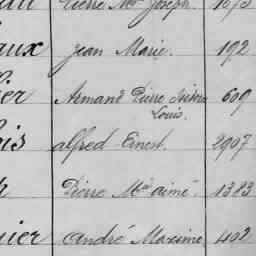 Pierre Mie Joseph. 1673
aux Jean Marie. 192
ier Armand Pierre 609
Louis.
ois Alfred Ernest. 2907
Pierre Mie aimé. 1383
nier André Maxime 402